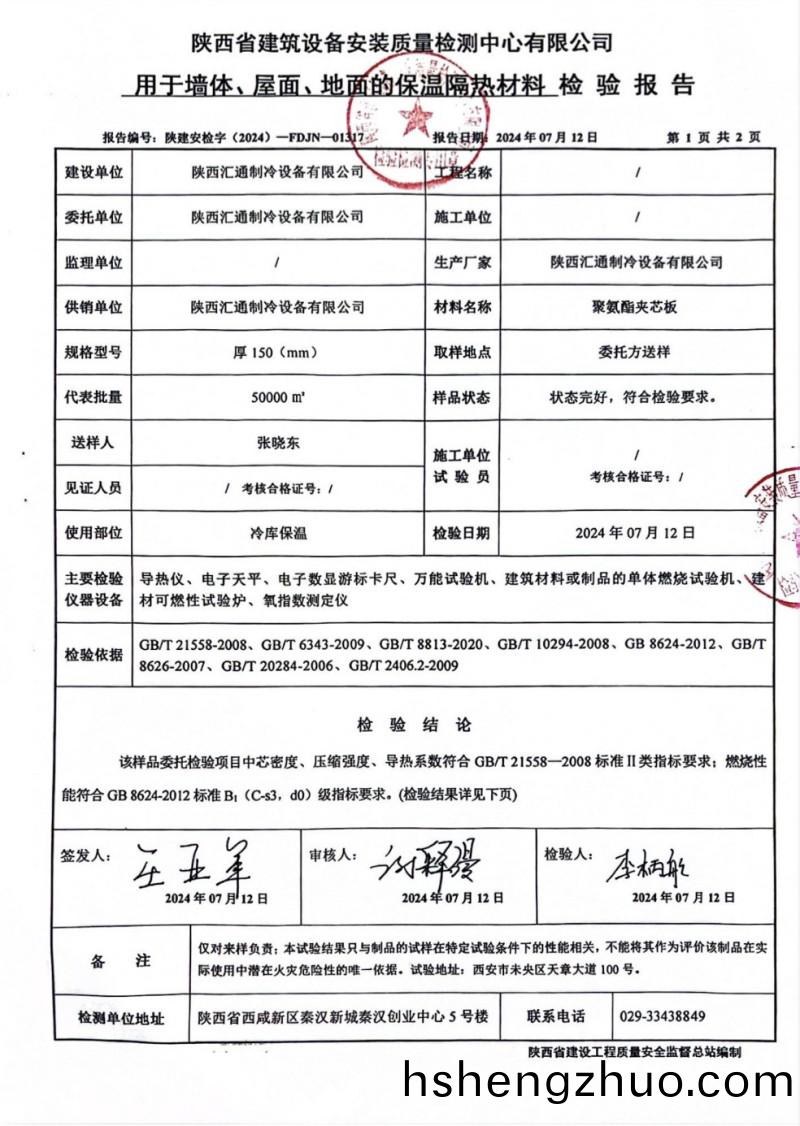 陕西省建筑设备安装质量检测中心有限公司
用于墙体、屋面、地面的保温隔热材料 检 验 报 告
报告编号：陕建安检字（2024）—FDJN—01317 报告日期：2024年07月12日 第 1 页 共 2 页
建设单位 陕西汇通制冷设备有限公司 工程名称 /
委托单位 陕西汇通制冷设备有限公司 施工单位 /
监理单位 / 生产厂家 陕西汇通制冷设备有限公司
供销单位 陕西汇通制冷设备有限公司 材料名称 聚氨酯夹芯板
规格型号 厚150（mm） 取样地点 委托方送样
代表批量 50000 ㎡ 样品状态 状态完好，符合检验要求。
送样人 张晓东
施工单位
试 验 员
/
考核合格证号：/
见证人员 / 考核合格证号：/
使用部位 冷库保温 检验日期 2024 年 07 月 12 日
主要检验
仪器设备
导热仪、电子天平、电子数显游标卡尺、万能试验机、建筑材料或制品的单体燃烧试验机、建
材可燃性试验炉、氧指数测定仪
检验依据
GB/T 21558-2008、GB/T 6343-2009、GB/T 8813-2020、GB/T 10294-2008、GB 8624-2012、GB/T
8626-2007、GB/T 20284-2006、GB/T 2406.2-2009
检 验 结 论
该样品委托检验项目中芯密度、压缩强度、导热系数符合 GB/T 21558—2008 标准Ⅱ类指标要求；燃烧性
能符合 GB 8624-2012 标准 B₁（C-s3，d0）级指标要求。(检验结果详见下页)
签发人： 审核人： 检验人：
2024 年 07 月 12 日 2024 年 07 月 12 日 2024 年 07 月 12 日
备 注
仅对来样负责；本试验结果只与制品的试样在特定试验条件下的性能相关，不能将其作为评价该制品在实
际使用中潜在火灾危险性的唯一依据。试验地址：西安市未央区天章大道 100 号。
检测单位地址 陕西省西咸新区秦汉新城秦汉创业中心 5 号楼 联系电话 029-33438849
陕西省建设工程质量安全监督总站编制
hshengzhuo.com